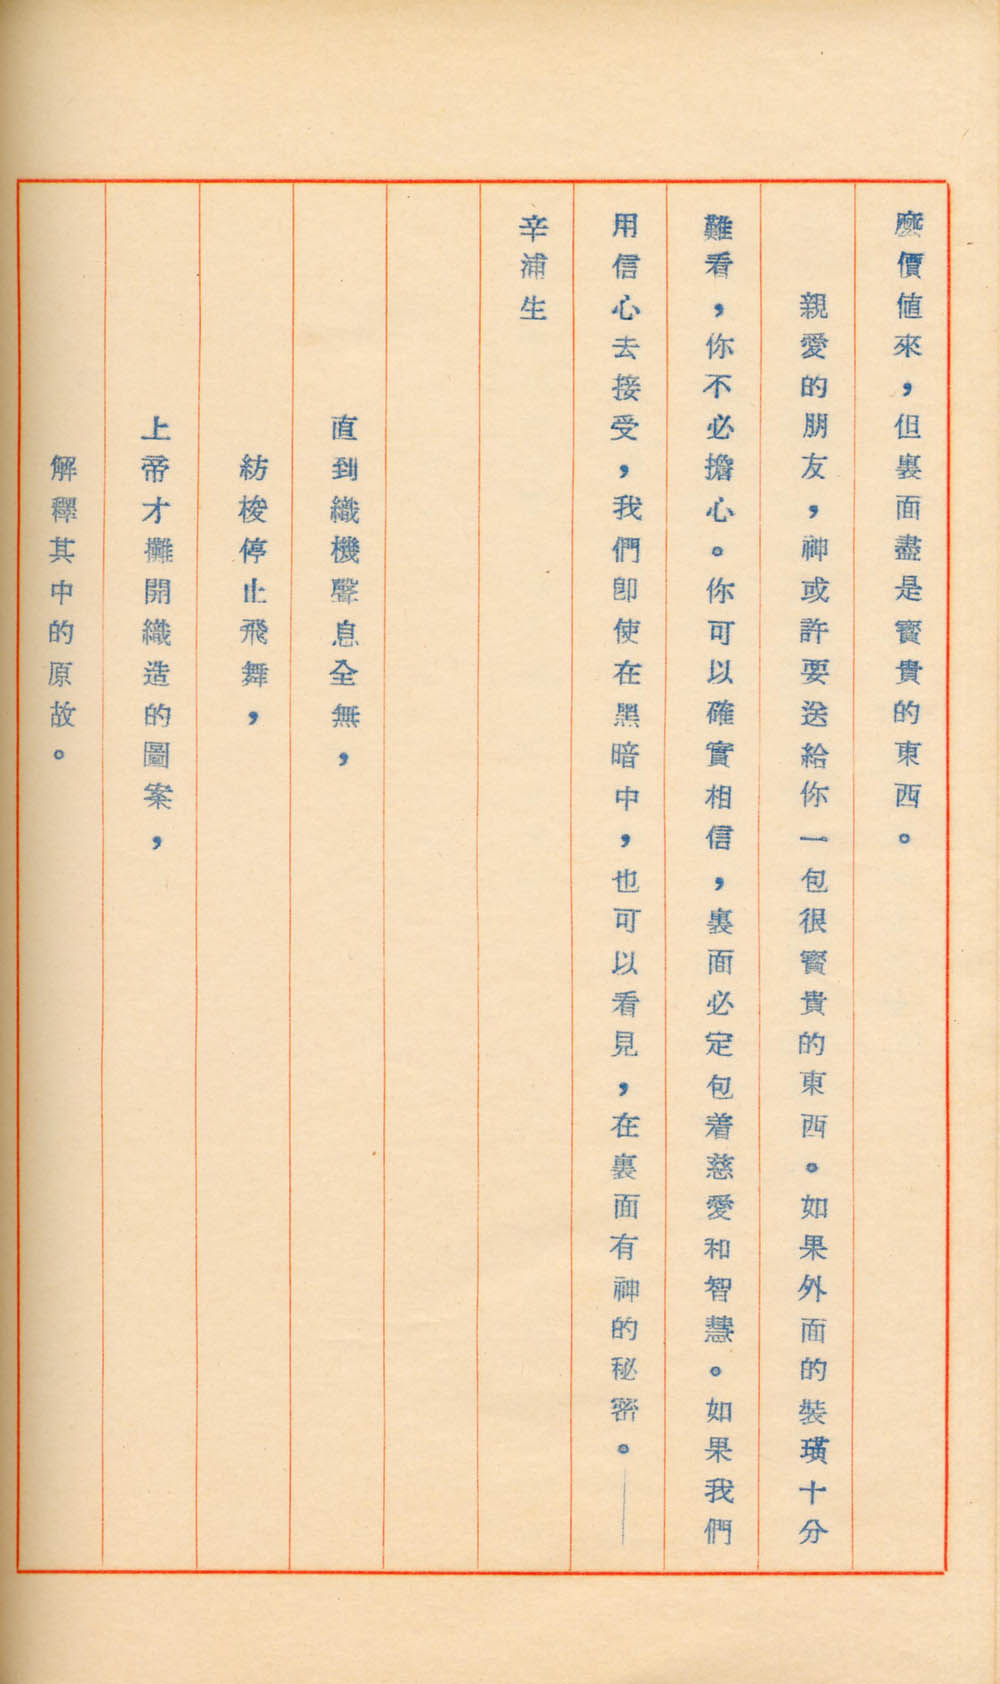 麼價値來，但裏面盡是寳貴的東西。
親愛的朋友，神或許要送給你一包很寳貴的東西。如果外面的裝璜十分
難看，你不必擔心。你可以確實相信，裏面必定包着慈愛和智慧。如果我們
用信心去接受，我們卽使在黑暗中，也可以看見，在裏面有神的秘密。——
辛浦生
直到織機聲息全無，
紡梭停止飛舞，
上帝才攤開織造的圖案，
解釋其中的原故。